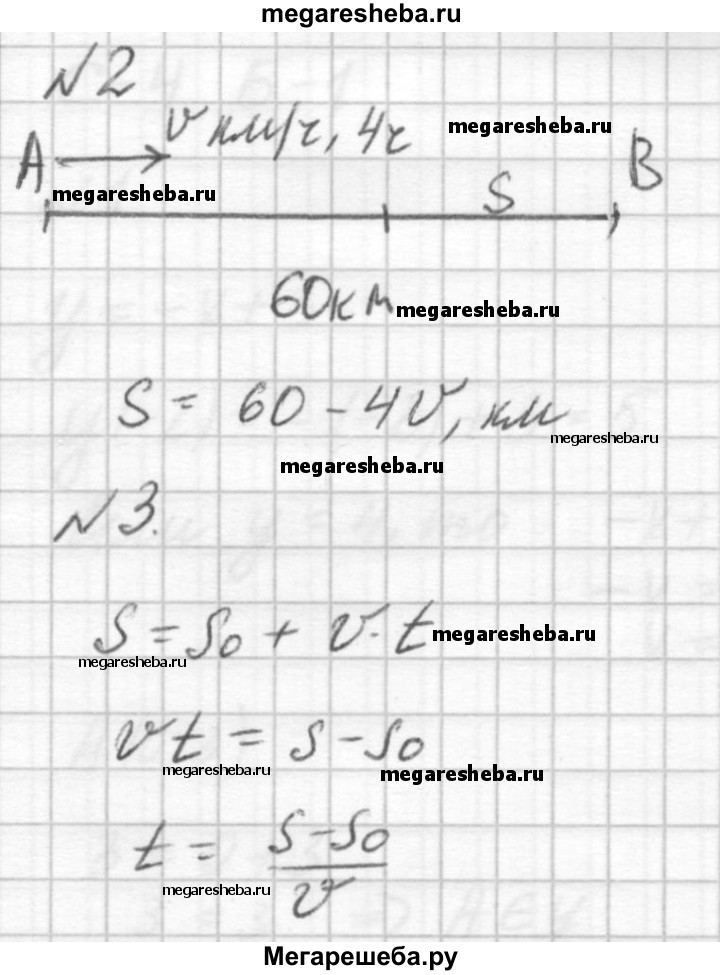 megaresheba.ru
№2
v км/ч, 4ч
megaresheba.ru
A
B
megaresheba.ru
S
60км
megaresheba.ru
S = 60 - 4v, км
megaresheba.ru
megaresheba.ru
№3.
S = S0 + v · t
megaresheba.ru
megaresheba.ru
vt = S - S0
megaresheba.ru
megaresheba.ru
t = (S - S0)/v
megaresheba.ru
Мегарешеба.ру